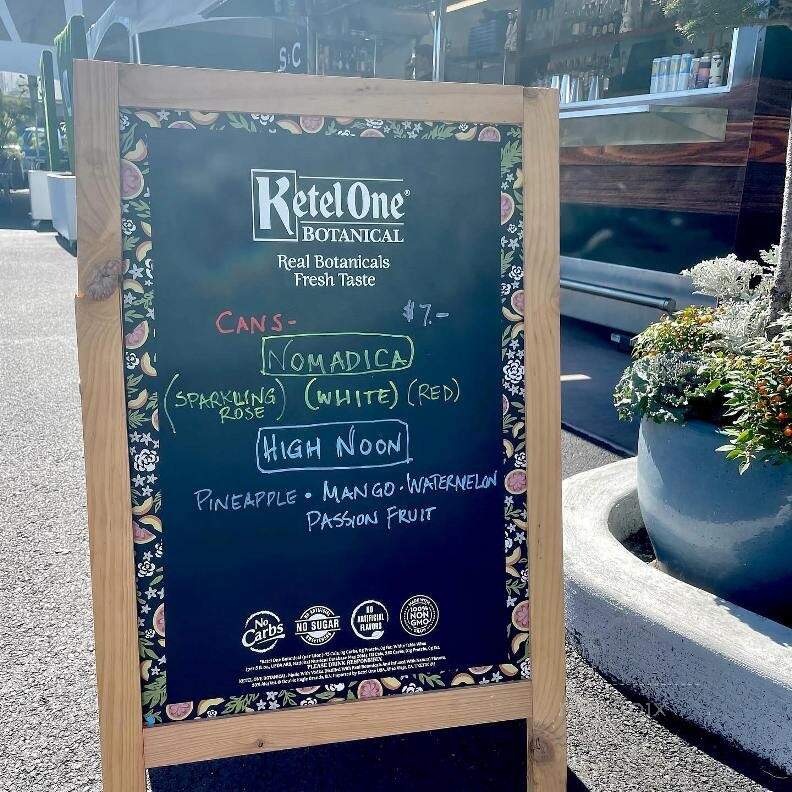 S C
Ketel One®
BOTANICAL
Real Botanicals
Fresh Taste
CANS- $7.-
NOMADICA
(SPARKLING ROSE) (WHITE) (RED)
HIGH NOON
PINEAPPLE • MANGO • WATERMELON
PASSION FRUIT
No Carbs
NO SUGAR
NO ARTIFICIAL FLAVORS
100% NON GMO
PLEASE DRINK RESPONSIBLY.